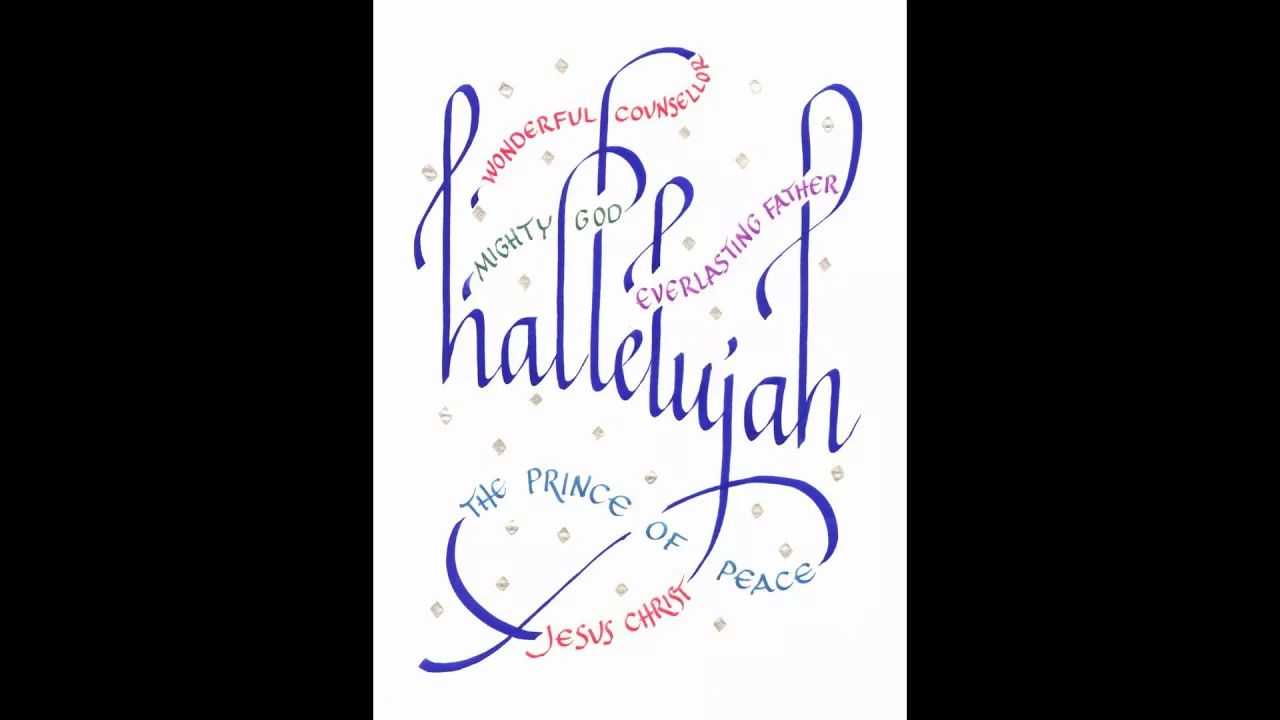 WONDERFUL COUNSELLOR
MIGHTY GOD
EVERLASTING FATHER
hallelujah
THE PRINCE OF PEACE
JESUS CHRIST